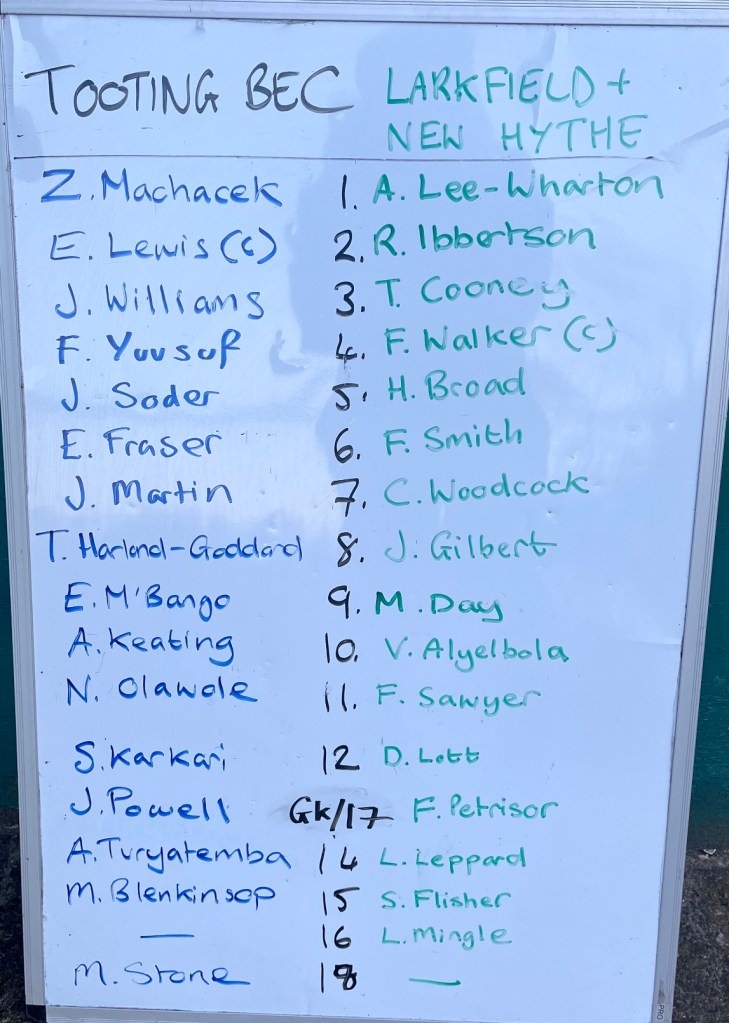 TOOTING BEC LARKFIELD +
NEW HYTHE
Z. Machacek 1. A. Lee-Wharton
E. Lewis (c) 2. R. Ibbertson
J. Williams 3. T. Cooney
F. Yuusuf 4. F. Walker (c)
J. Soder 5. H. Broad
E. Fraser 6. F. Smith
J. Martin 7. C. Woodcock
T. Harland-Goddard 8. J. Gilbert
E. M'Bango 9. M. Day
A. Keating 10. V. Alyelbola
N. Olawole 11. F. Sawyer
S. Karkari 12 D. Lott
J. Powell Gk/17 F. Petrisor
A. Turyatemba 14 L. Leppard
M. Blenkinsop 15 S. Flisher
— 16 L. Mingle
M. Stone 18 —
PRO